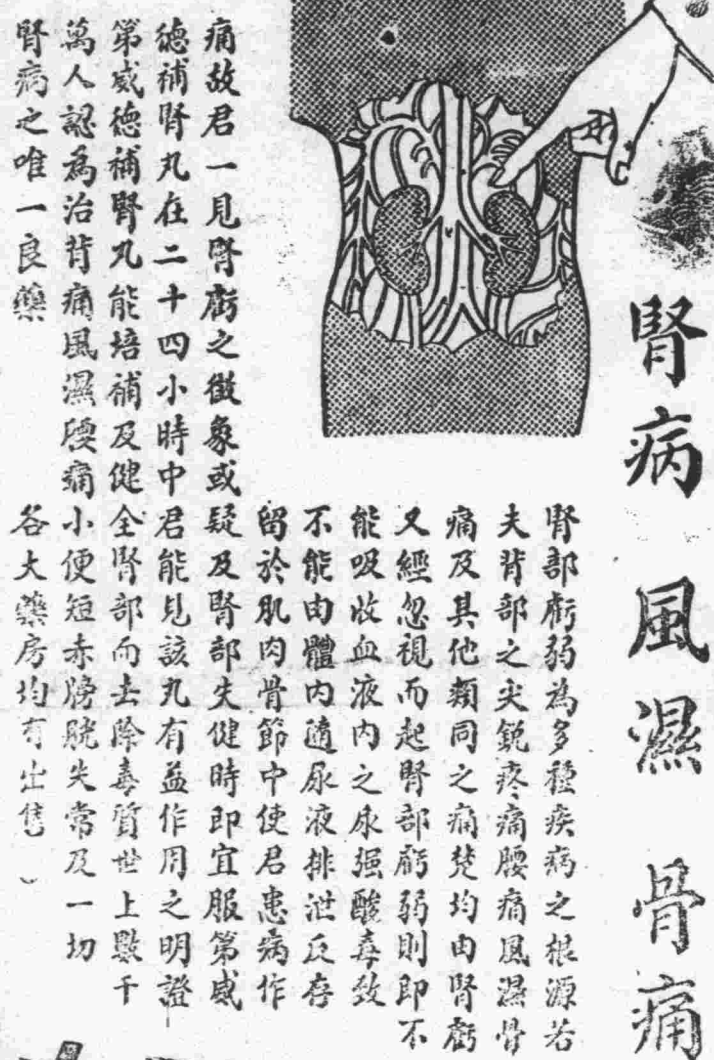 腎病 風濕 骨痛
腎部虧弱為多種疾病之根源若
夫背部之尖銳疼痛腰痛風濕骨
痛及其他類同之痛楚均由腎虧
又經忽視而起腎部虧弱則即不
能吸收血液內之尿强酸毒致
不能由體內隨尿液排泄反存
留於肌肉骨節中使君患病作
痛故君一見腎虧之徵象或疑及腎部失健時即宜服第威
德補腎丸在二十四小時中君能見該丸有益作用之明證
第威德補腎丸能培補及健全腎部而去除毒質世上數千
萬人認為治背痛風濕腰痛小便短赤膀胱失常及一切
腎病之唯一良藥 各大藥房均有出售）